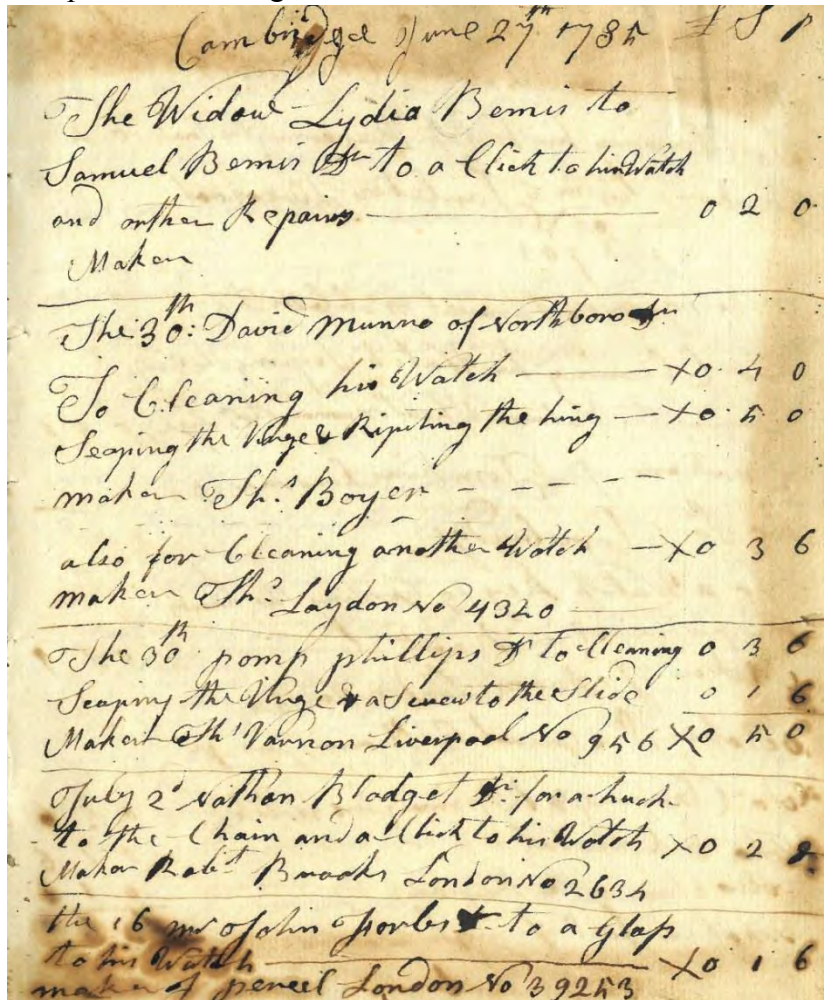 Cambridge June 27th 1785 £ S P
The Widow Lydia Bemis to
Samuel Bemis Dr to a Click to his Watch
and other Repairs — 0 2 0
Maker
The 30th: David Munro of Northboro Dr
To Cleaning his Watch — X0 4 0
Scaping the Virge & Ripiting the hing — X0 5 0
maker Ths Boyer - - - -
also for Cleaning another Watch — X0 3 6
maker Ths Laydon No 4320
The 30th pomp phillips Dr to Cleaning 0 3 6
Scaping the Virge & a Screw to the Slide 0 1 6
Maker Ths Varnon Liverpool No 956 X0 5 0
July 2d Nathan Blodget Dr for a huck
to the Chain and a Click to his Watch X0 2
Maker Robt Brooks London No 2634
the 16 mr John Forbes Dr to a Glass
to his Watch — X0 1 6
maker J pereel London No 39253